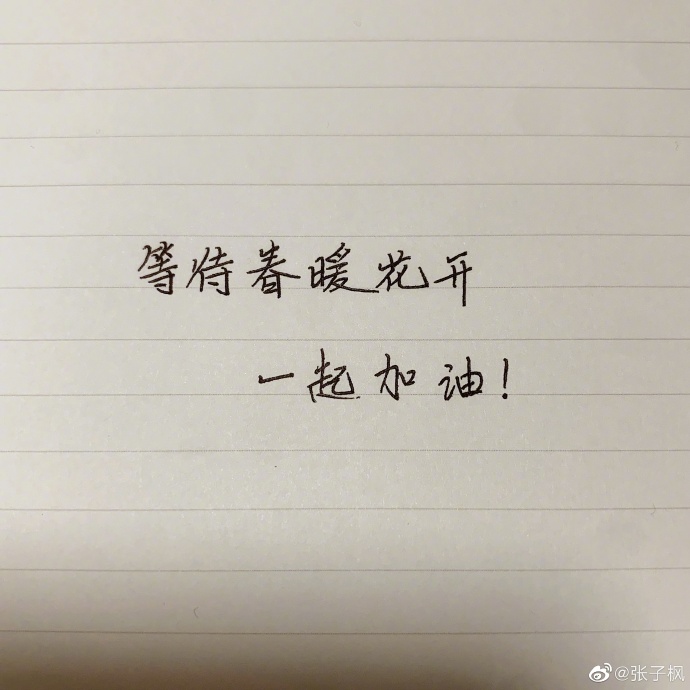 等待春暖花开
一起加油!
@张子枫